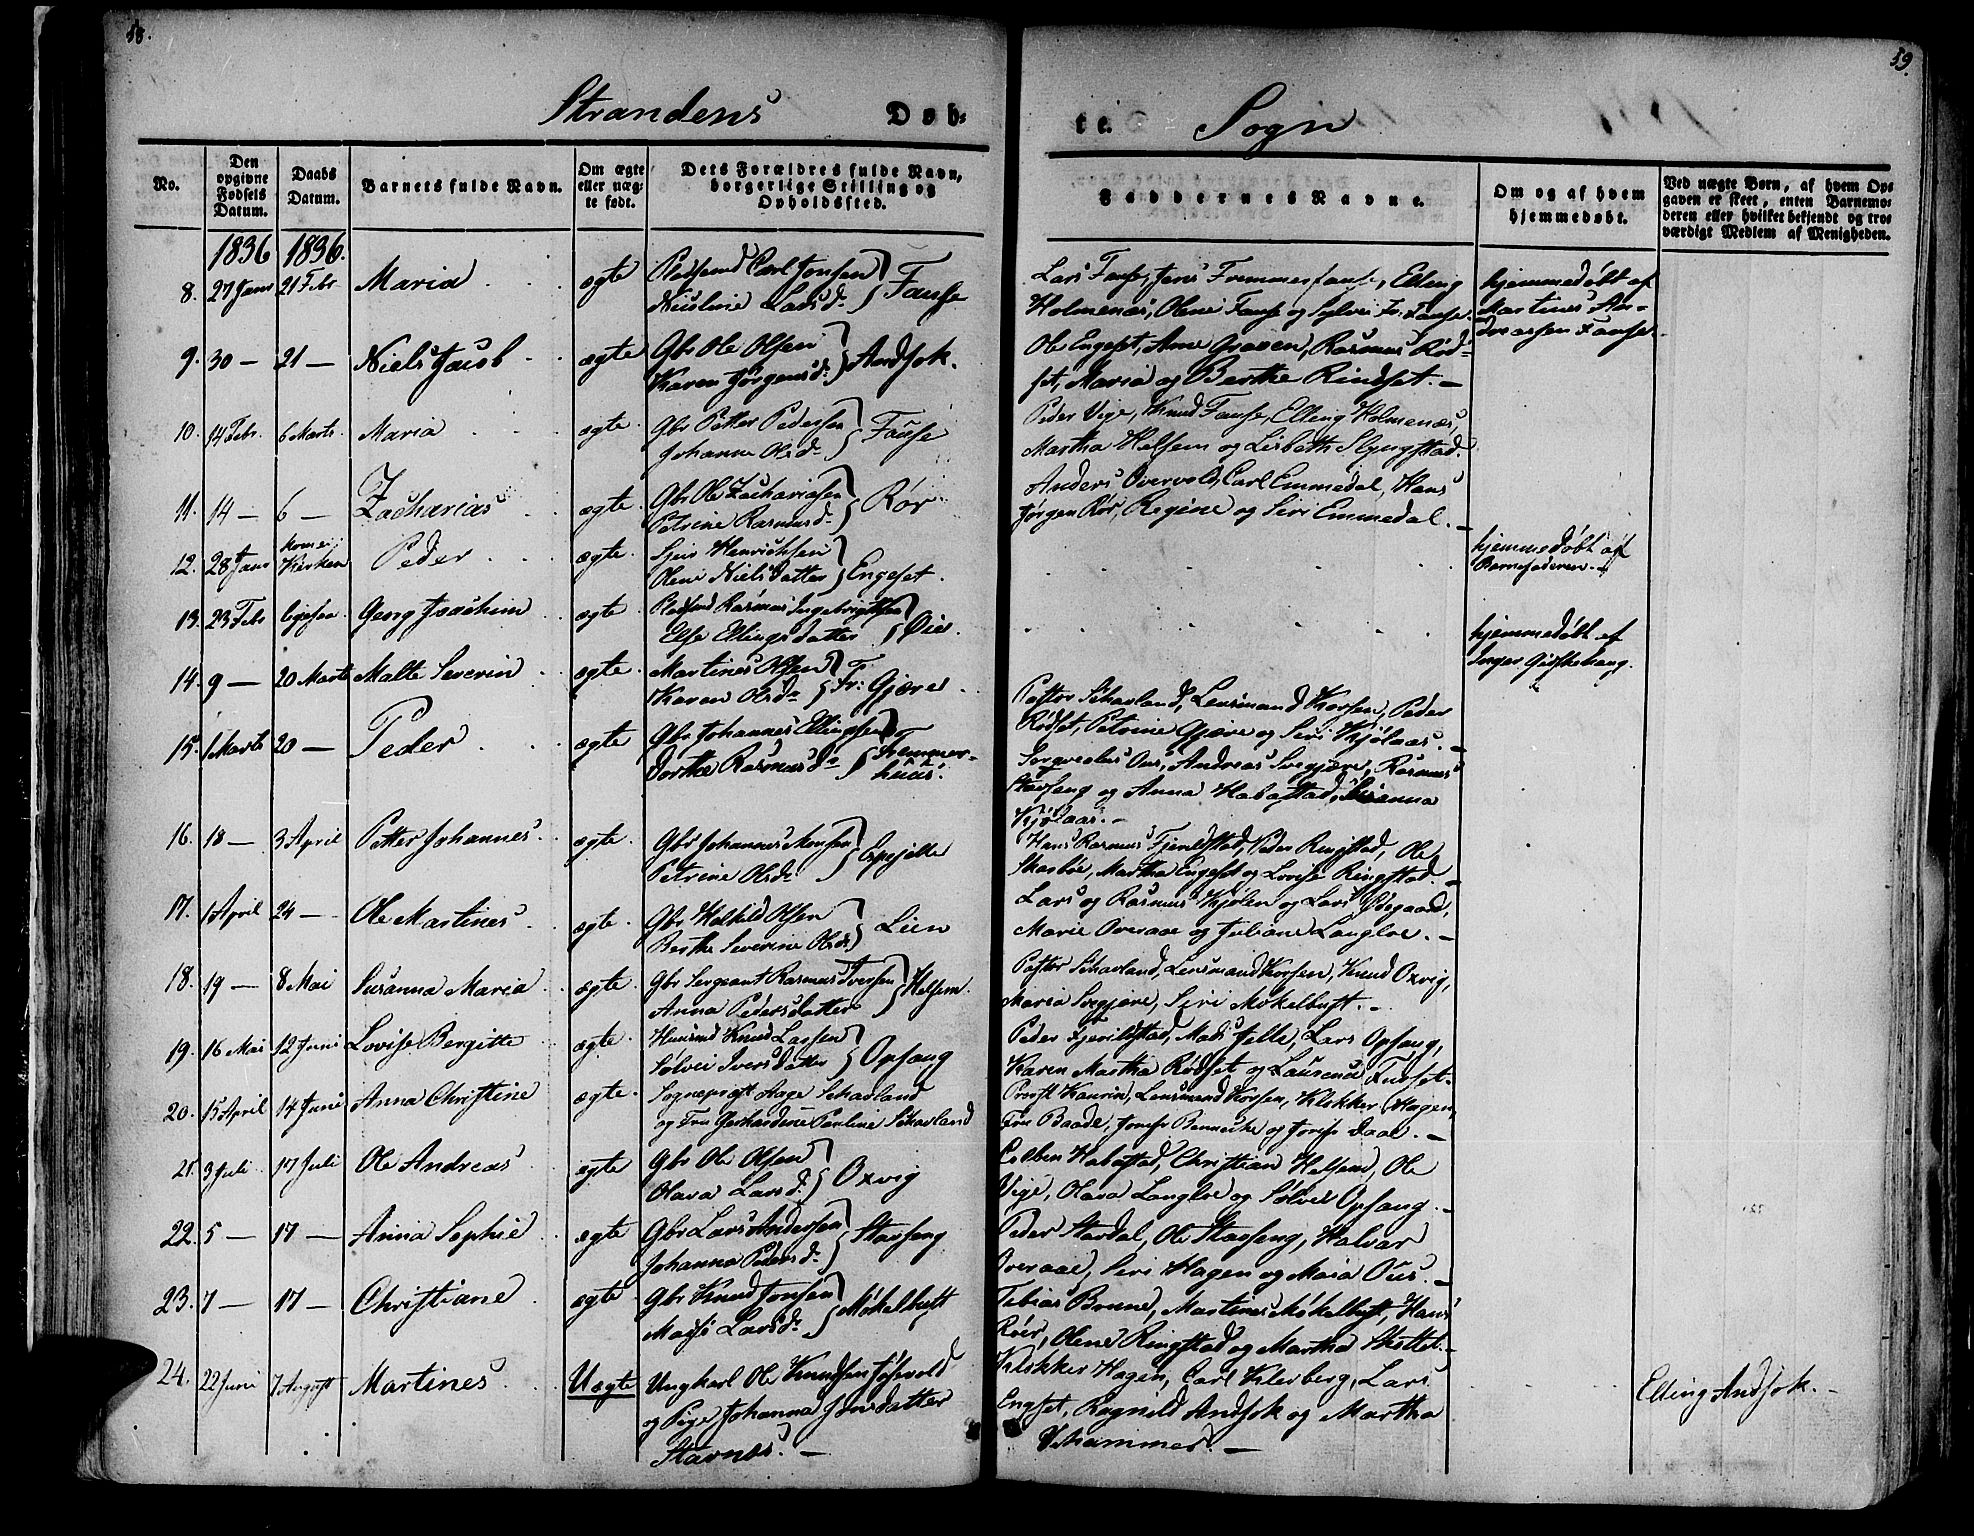 58.
59.
Strandens Døb-
te. Sogn
No.
Den opgivne Fødsels Datum.
Daabs Datum.
Barnets fulde Navn.
Om ægte eller uæg- te født.
Dets Forældres fulde Navn, borgerlige Stilling og Opholdssted.
Faddernes Navne.
Om og af hvem hjemmedøbt.
Ved uægte Børn, af hvem Op- gaven er skeet, enten Barnemo- deren eller hvilket bekjendt og tro- værdigt Medlem af Menigheden.
1836 1836.
8. 27 Janr 21 Febr Maria ægte Carl Jonsen
Larsd. Fause
Lars Fause, Jens Fremmerfause, Elling
Holmenæs, Olene Fause og Sylvei Fr. Fause.
hjemmedøbt af
Martinus An-
dreassen Fause.
9. 30 — 21 — Niels Jacob ægte Gbr Ole Olsen
Karen Jörgensd. Andsok.
Ole Engeset, Arne Graven, Rasmus Rød-
set, Maria og Berthe Rindset. —
10. 14 Febr. 6 Marts. Maria ægte Gbr Petter Pedersen
Johanne Olsd. Fause
Peder Vige, Knud Fause, Elling Holmenæs,
Martha Helsem og Lisbeth Slyngstad.
11. 14 — 6 — Zacharias ægte. Gbr Ole Zachariasen
Petrine Rasmusd. Rør
Anders Overvold, Carl Emmedal, Hans
Jörgen Rør, Regine og Siri Emmedal. —
12. 28 Janr Kirken Peder ægte. Henrichsen
Olene Nielsdatter Engeset.
hjemmedøbt af
Barnefaderen.
13. 23 Febr Georg Joachim ægte Rasmus Ingebrigtsen
Else Ellingsdatter Øien.
hjemmedøbt af
Inger Girskehaug.
14. 9 — 20 Marts Malte Severin ægte Martines Olsen
Karen Olsd. Fr: Gjære
Pastor Schavland, Lensmand Korsen, Peder
Rødset, Petrine Gjære og Siri Kjølaas. —
15. 1 Marts 20 — Peder ægte Gbr Johannes Ellingsen
Dorthe Rasmusd. Fremmer-
huus.
Ous, Andreas Svegjære, Rasmus
Stavseng og Anna Habostad, Susanna
Kjølaas. —
16. 18 — 3 April Petter Johannes. ægte Gbr Johannes Monsen
Petrine Olsd. Espejelle
Hans Rasmus Fjerildstad, Peder Ringstad, Ole
Skarbøe, Martha Engeset og Lovise Ringstad.
17. 1 April 24 — Ole Martines ægte. Gbr Olsen
Berthe Severine Olsd. Lien
Lars og Rasmus Kjølen og Lars Ødegaard,
Marie Overaae og Juliane Langloe. —
18. 19 — 8 Mai Susanna Maria ægte. Gbr Sergeant Rasmus Iversen
Anna Pedersdatter Helsem.
Pastor Schavland, Lensmand Korsen, Knud Oxvig,
Maria Svegjære, Siri Mökelbust. —
19. 16 Mai 12 Juni Lovise Bergitte ægte. Huusmd Knud Lassen
Sølvei Iversdatter Opsang
Peder Fjerildstad, Mads Jelle, Lars Opsang,
Karen Martha Rødset og Laurense Furset.
20. 15 April 14 Juni Anna Christine ægte. Sogneprest Aage Schavland
og Fru Gerhardine Pauline Schavland
Provst Kaurin, Lensmand Korsen, Klokker Hagen,
Fru Baade, Jomfr og Jomfr Daae. —
21. 3 Juli 17 Juli Ole Andreas ægte Gbr Ole Olsen
Olava Larsd. Oxvig
Habostad, Christian Helsem, Ole
Vige, Olava Langloe og Sølvei Opsang. —
22. 5 — 17 — Anna Sophie ægte Gbr Lars Andersen
Johanna Pedersd. Stavseng
Peder Stavdal, Ole Stavseng, Halvor
Overaae, Siri Hagen og Maria Ous. —
23. 7 — 17 — Christiane ægte Gbr Knud Jonsen
Larsd. Mökelbust
Tobias Brune, Martines Mökelbust, Hans
Røer, Olene Ringstad og Martha
24. 22 Juni 7 August Martines Uægte Ungkarl Ole Knudsen
og Pige Johanna Jonsdatter
Stavnes. —
Klokker Hagen, Carl Klerberg, Lars
Engset, Ragnild Andsok og Martha
Elling Andsok. —